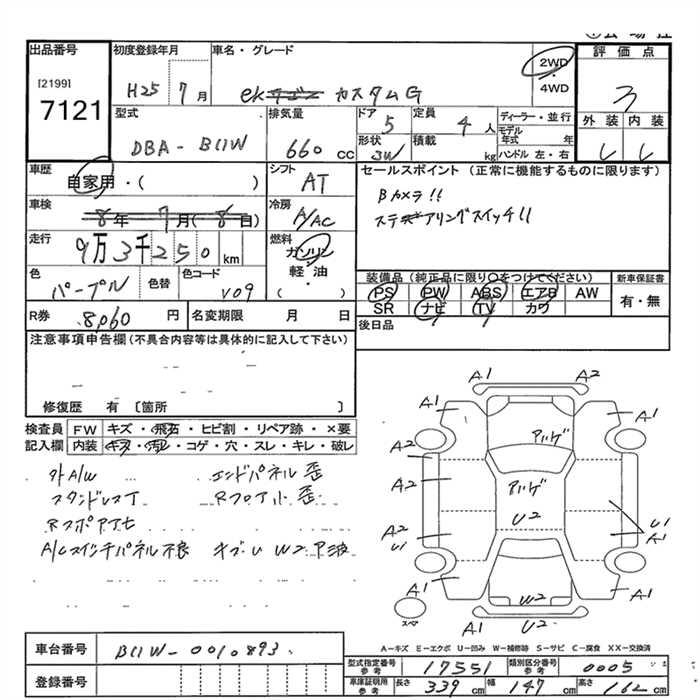 出品番号
[2199]
7121
初度登録年月
H25 7月
車名・グレード
ek カスタムG
2WD
4WD
評価点
3
外装 内装
型式
DBA-B11W
排気量
660 cc
ドア
5
定員
4人
形状
5W
積載
kg
ディーラー・並行
モデル年式 年
ハンドル 左・右
車歴
自家用・( )
シフト
AT
セールスポイント (正常に機能するものに限ります)
Bカメラ!!
ステアリングスイッチ!!
車検
8年 7月(8日)
冷房
A/AC
走行
9万3千250km
燃料
ガソリン
軽・油
( )
色
パープル
色替
色コード
V09
装備品(純正品に限り○をつけてください)
PS PW ABS エアB AW
SR ナビ TV カワ
新車保証書
有・無
R券
8,060円
名変期限 月 日
後日品
注意事項申告欄(不具合内容等は具体的に記入して下さい)
修復歴 有 [箇所 ]
検査員記入欄
FW キズ・飛石・ヒビ割・リペア跡・×要
内装 キズ・汚レ・コゲ・穴・スレ・キレ・破レ
外A/W
エンドパネル歪
スタンドレスT
Rフロア小歪
A/Cスイッチパネル不良
キズU W2 P波
A1 A2
A1 A1
アハゲ
A2
A2
アハゲ
U2
A2
U1
U1
A1
A1 A1
W2
A1 U2
スペア
A-キズ E-エクボ U-凹み W-補修跡 S-サビ C-腐食 XX-交換済
車台番号
B11W-0010893
登録番号
型式指定番号 参考
17551
類別区分番号 参考
0005
車庫証明用 参考
長さ 339cm
幅 147cm
高さ 162cm